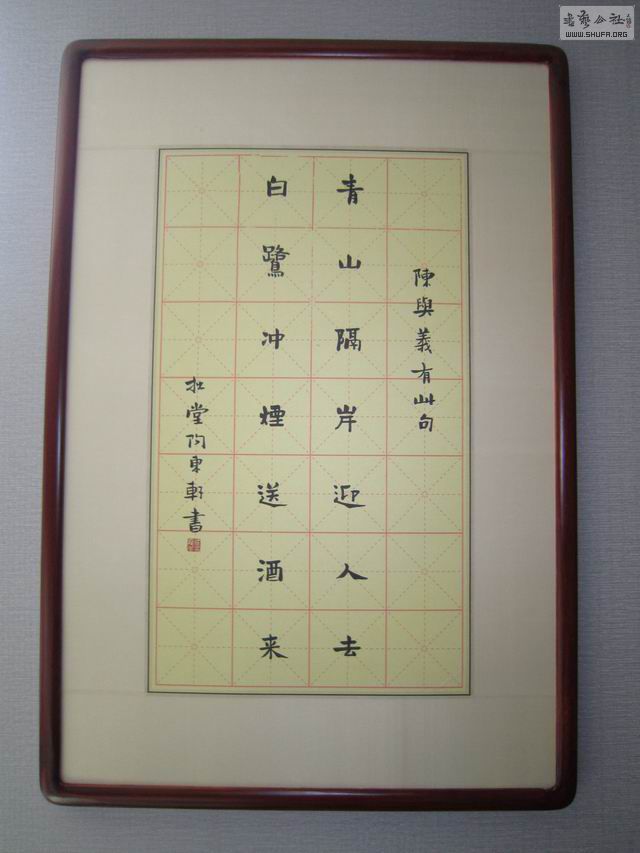 陳與義有此句
青山隔岸迎人去
白鷺冲煙送酒来
堂向東軒書
書藝公社
WWW.SHUFA.ORG